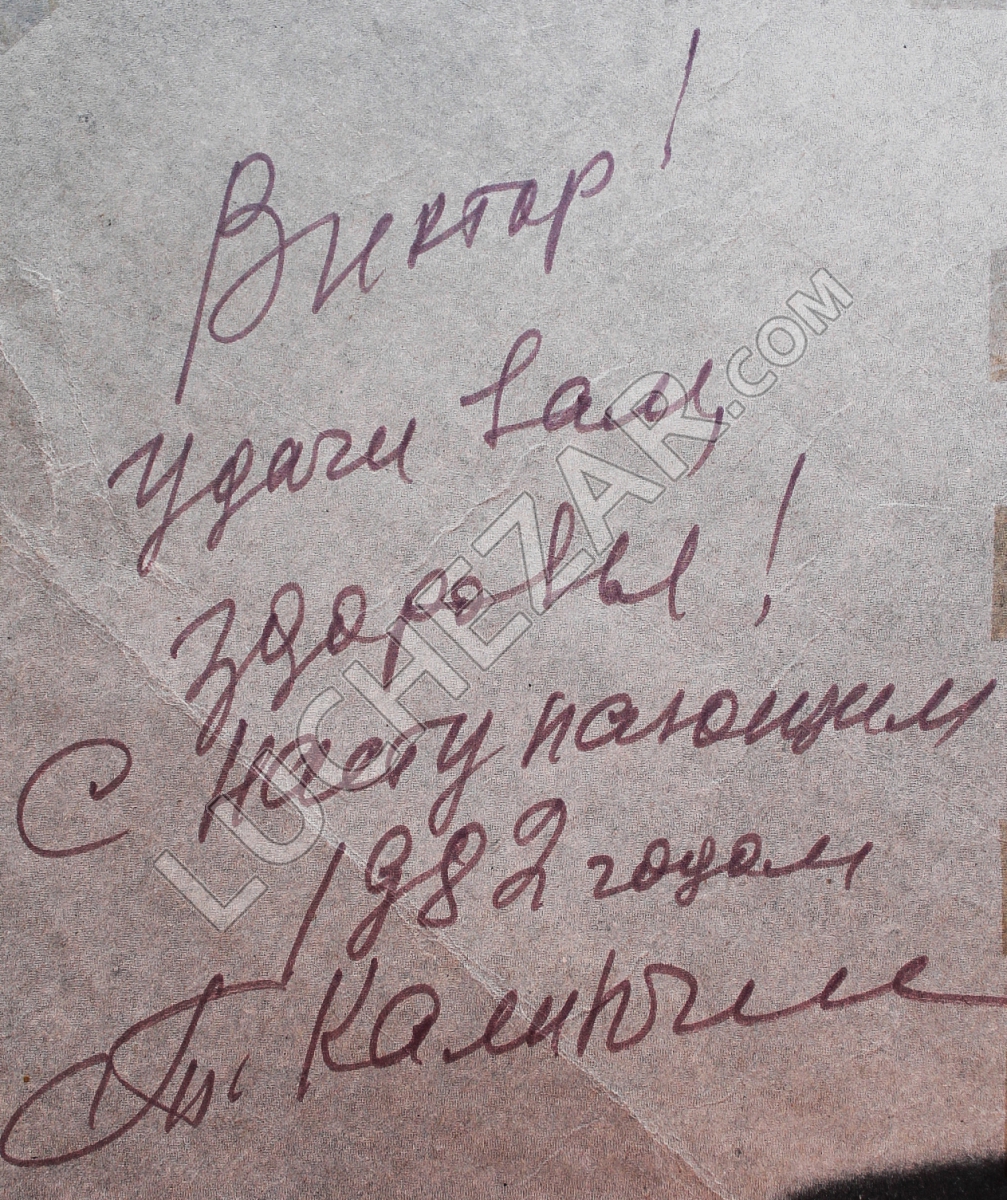 Виктор!
удачи вам,
здоровья!
С Наступающим
1982 годом
LUCHEZAR.COM